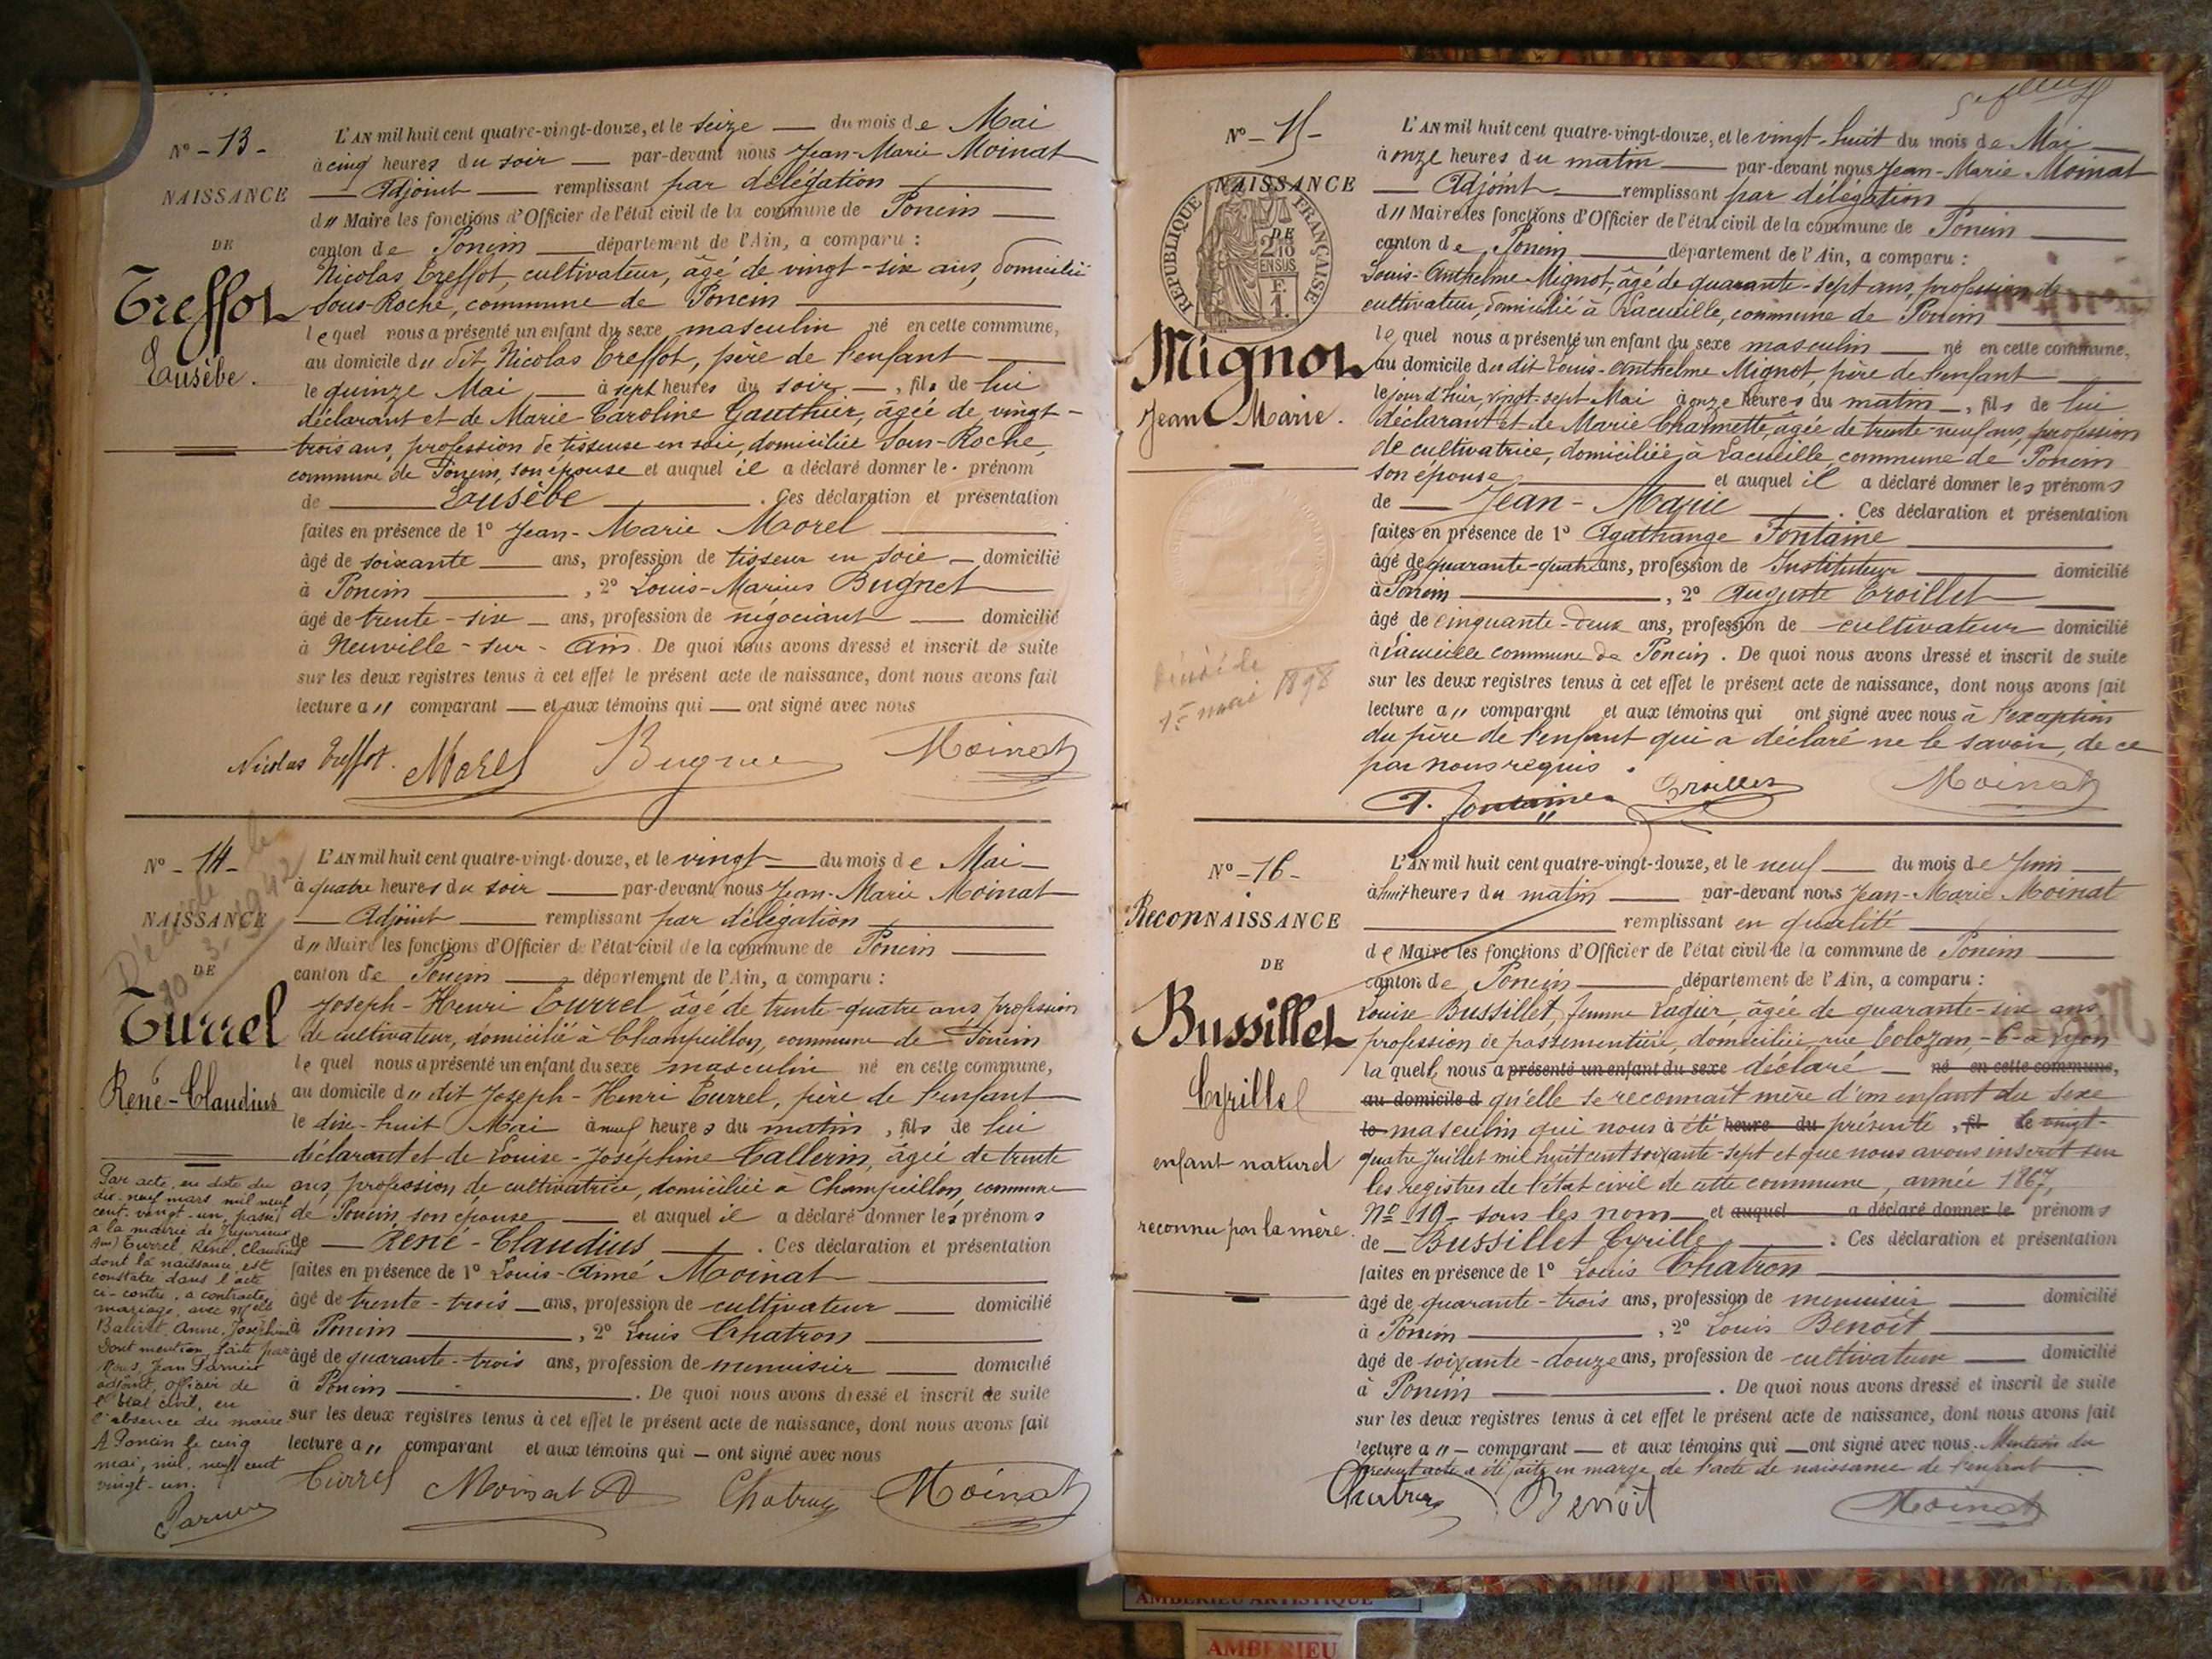 N° - 13 -
NAISSANCE
DE
Treffot
Eusèbe.
L'AN mil huit cent quatre-vingt-douze, et le seize du mois de Mai
à cinq heures du soir par-devant nous Jean-Marie Moinat
Adjoint remplissant par délégation
d" Maire les fonctions d'Officier de l'état civil de la commune de Poncin
canton de Poncin département de l'Ain, a comparu :
Nicolas Treffot, cultivateur, âgé de vingt-six ans, domicilié
sous-Roche, commune de Poncin
lequel nous a présenté un enfant du sexe masculin né en cette commune,
au domicile du dit Nicolas Treffot, père de l'enfant
le quinze Mai à sept heures du soir, fils de lui
déclarant et de Marie-Caroline Gauthier, âgée de vingt-
trois ans, profession de tisseuse en soie, domiciliée Sous-Roche,
commune de Poncin, son épouse et auquel il a déclaré donner le prénom
de Eusèbe . Ces déclaration et présentation
faites en présence de 1° Jean-Marie Morel
âgé de soixante ans, profession de tisseur en soie domicilié
à Poncin , 2° Louis-Marius Bugnet
âgé de trente-six ans, profession de négociant domicilié
à Neuville-sur-Ain. De quoi nous avons dressé et inscrit de suite
sur les deux registres tenus à cet effet le présent acte de naissance, dont nous avons fait
lecture a" comparant et aux témoins qui ont signé avec nous
Nicolas Treffot. Morel Bugnet Moinat
N° - 14 -
NAISSANCE
DE
Turrel
René-Claudius
Décédé le
L'AN mil huit cent quatre-vingt-douze, et le vingt du mois de Mai
à quatre heures du soir par-devant nous Jean-Marie Moinat
Adjoint remplissant par délégation
d" Maire les fonctions d'Officier de l'état civil de la commune de Poncin
canton de Poncin département de l'Ain, a comparu :
Joseph-Henri Turrel âgé de trente-quatre ans, profession
de cultivateur, domicilié à Champeillon, commune de Poncin
lequel nous a présenté un enfant du sexe masculin né en cette commune,
au domicile du dit Joseph-Henri Turrel, père de l'enfant
le dix-huit Mai à neuf heures du matin, fils de lui
déclarant et de Louise-Joséphine Callerin, âgée de trente
ans, profession de cultivatrice, domiciliée à Champeillon, commune
de Poncin, son épouse et auquel il a déclaré donner les prénoms
de René-Claudius . Ces déclaration et présentation
faites en présence de 1° Louis-Aimé Moinat
âgé de trente-trois ans, profession de cultivateur domicilié
à Poncin , 2° Louis Chatron
âgé de quarante-trois ans, profession de menuisier domicilié
à Poncin . De quoi nous avons dressé et inscrit de suite
sur les deux registres tenus à cet effet le présent acte de naissance, dont nous avons fait
lecture a" comparant et aux témoins qui ont signé avec nous
Turrel Moinat Chatron Moinat
Par acte, en date du
dix-neuf mars mil neuf
cent vingt-un, passé
à la mairie de Jujurieux
(Ain) Turrel, René, Claudius
dont la naissance est
constatée dans l'acte
ci-contre, a contracté
mariage, avec Melle
Balivet, Anne, Joséphine
Dont mention faite par
Nous, Jean
adjoint, officier de
l'état civil, en
l'absence du maire
A Poncin le cinq
mai, mil neuf cent
vingt-un.
N° - 15 -
NAISSANCE
DE
RÉPUBLIQUE FRANÇAISE
2/10
EN SUS
F.
1.
Mignot
Jean Marie.
Décédé le
15 mai 1898
L'AN mil huit cent quatre-vingt-douze, et le vingt-huit du mois de Mai
à onze heures du matin par-devant nous Jean-Marie Moinat
Adjoint remplissant par délégation
d" Maire les fonctions d'Officier de l'état civil de la commune de Poncin
canton de Poncin département de l'Ain, a comparu :
Louis-Anthelme Mignot, âgé de quarante-sept ans, profession de
cultivateur, domicilié à Lacueille, commune de Poncin
lequel nous a présenté un enfant du sexe masculin né en cette commune,
au domicile du dit Louis-Anthelme Mignot, père de l'enfant
le jour d'hier, vingt-sept Mai à onze heures du matin, fils de lui
déclarant et de Marie Charmette, âgée de trente-neuf ans, profession
de cultivatrice, domiciliée à Lacueille, commune de Poncin
son épouse et auquel il a déclaré donner les prénoms
de Jean-Marie . Ces déclaration et présentation
faites en présence de 1° Agathange Fontaine
âgé de quarante-quatre ans, profession de Instituteur domicilié
à Poncin , 2° Auguste Croillet
âgé de cinquante-deux ans, profession de cultivateur domicilié
à Lacueille commune de Poncin. De quoi nous avons dressé et inscrit de suite
sur les deux registres tenus à cet effet le présent acte de naissance, dont nous avons fait
lecture a" comparant et aux témoins qui ont signé avec nous à l'exception
du père de l'enfant qui a déclaré ne le savoir, de ce
par nous requis.
A. Fontaine Croillet Moinat
N° - 16 -
ReconNAISSANCE
DE
Bussillet
Cyrille
enfant naturel
reconnu par la mère.
L'AN mil huit cent quatre-vingt-douze, et le neuf du mois de Juin
à huit heures du matin par-devant nous Jean-Marie Moinat
remplissant en qualité
de Maire les fonctions d'Officier de l'état civil de la commune de Poncin
canton de Poncin département de l'Ain, a comparu :
Louise Bussillet, femme Lagier, âgée de quarante-six ans
profession de passementière, domiciliée rue Coloz̀an, - 6 - à Lyon
laquelle nous a présenté un enfant du sexe déclaré né en cette commune,
au domicile d qu'elle se reconnaît mère d'un enfant du sexe
le masculin qui nous a été heure du présenté, fil le vingt-
quatre Juillet mil huit cent soixante-sept et que nous avons inscrit sur
les registres de l'état civil de cette commune, année 1867,
N° 19 - sous les nom et auquel a déclaré donner le prénoms
de Bussillet Cyrille . Ces déclaration et présentation
faites en présence de 1° Louis Chatron
âgé de quarante-trois ans, profession de menuisier domicilié
à Poncin , 2° Louis Benoît
âgé de soixante-douze ans, profession de cultivateur domicilié
à Poncin . De quoi nous avons dressé et inscrit de suite
sur les deux registres tenus à cet effet le présent acte de naissance, dont nous avons fait
lecture a" comparant et aux témoins qui ont signé avec nous. Mention du
présent acte a été faite en marge de l'acte de naissance de l'enfant
Chatron Benoit Moinat
AMBERIEU ARTISTIQUE
AMBERIEU